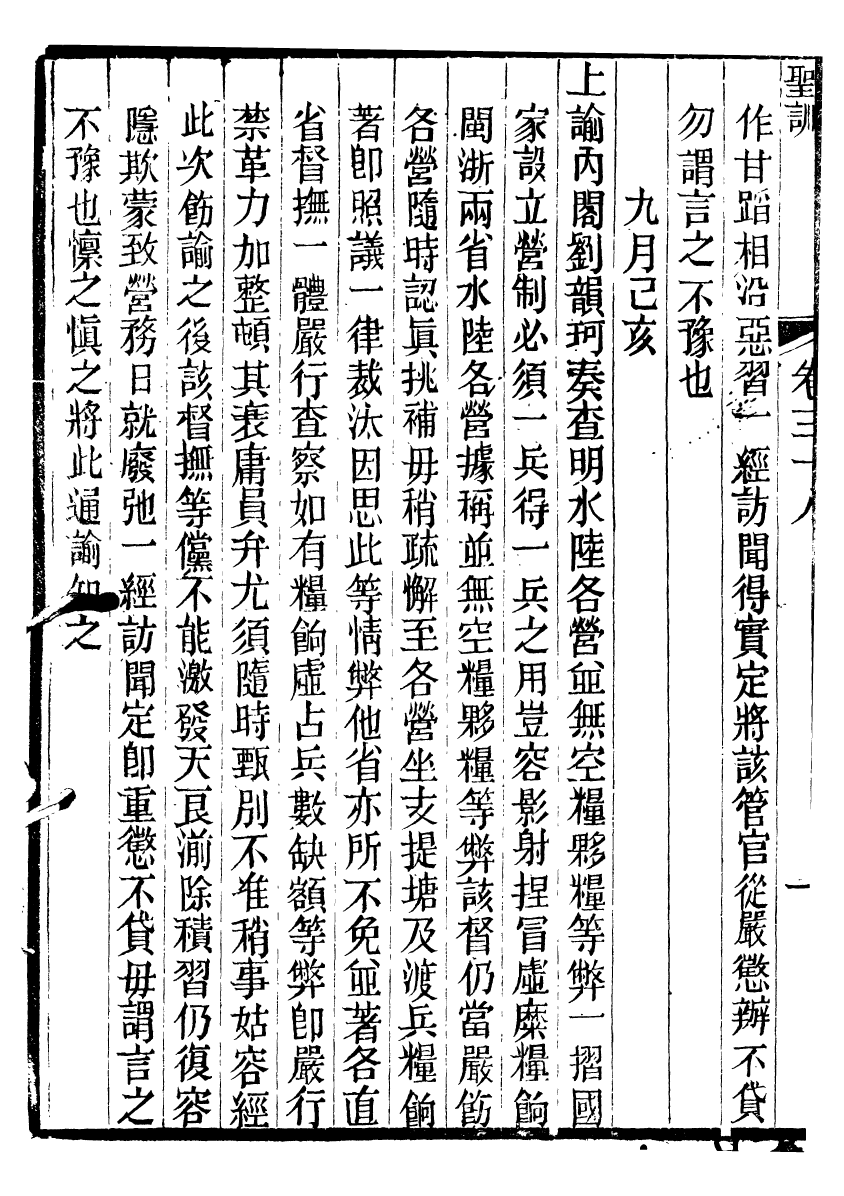 聖訓
卷三十八
一
作甘蹈相沿惡習一經訪聞得實定將該管官從嚴懲辦不貸
勿謂言之不豫也
九月己亥
上諭內閣劉韻珂奏查明水陸各營並無空糧夥糧等弊一摺國
家設立營制必須一兵得一兵之用豈容影射捏冒虛糜糧餉
閩浙兩省水陸各營據稱並無空糧夥糧等弊該督仍當嚴飭
各營隨時認眞挑補毋稍疏懈至各營坐支提塘及渡兵糧餉
著卽照議一律裁汰因思此等情弊他省亦所不免並著各直
省督撫一體嚴行查察如有糧餉虛占兵數缺額等弊卽嚴行
禁革力加整頓其衰庸員弁尤須隨時甄別不准稍事姑容經
此次飭諭之後該督撫等儻不能激發天良湔除積習仍復容
隱欺蒙致營務日就廢弛一經訪聞定卽重懲不貸毋謂言之
不豫也懍之愼之將此通諭知之